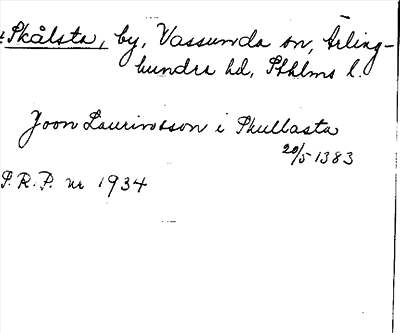 *Skålsta, by, Vassunda sn, Ärling-
hundra hd, Sthlms l.
Joon Laurinsson i Skullasta
20/5 1383
S.R.P. nr 1934